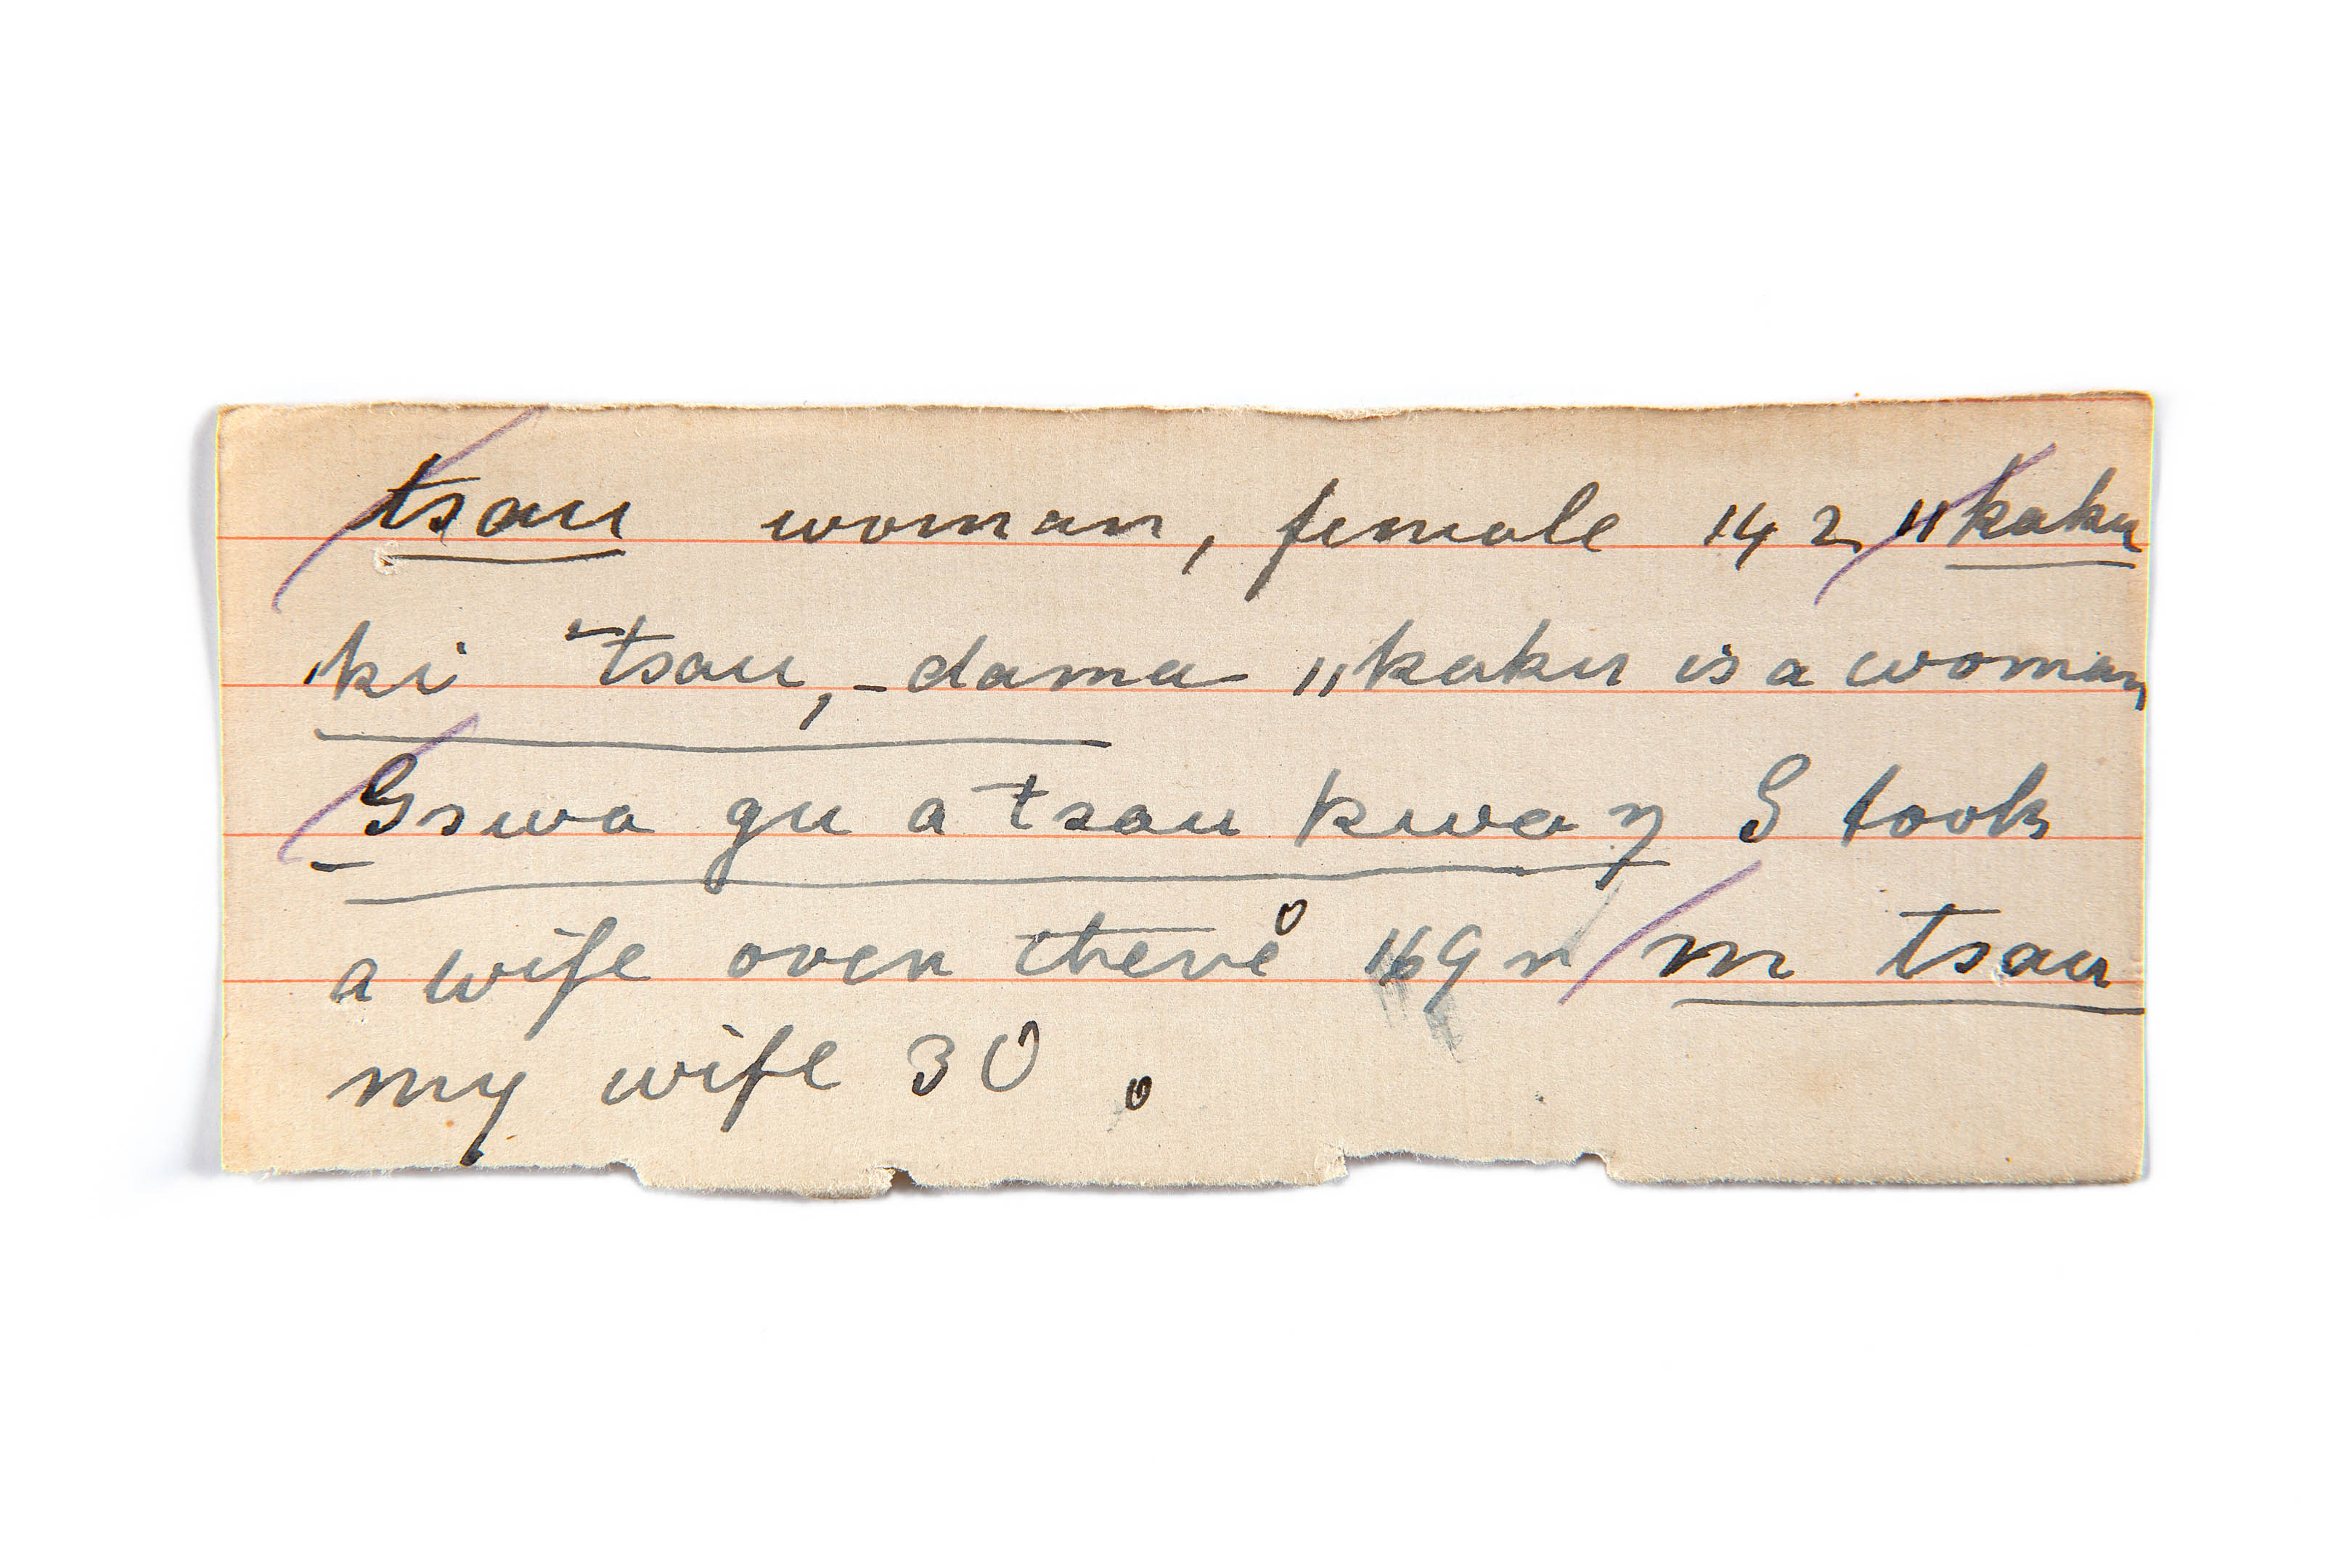 tsau woman, female 142 "kaku
ki ‾tsau, _dama "kaku is a woman
Gswa gu a ‾tsau kwaŋ S took
a wife over there 169 m ‾tsau
my wife 30